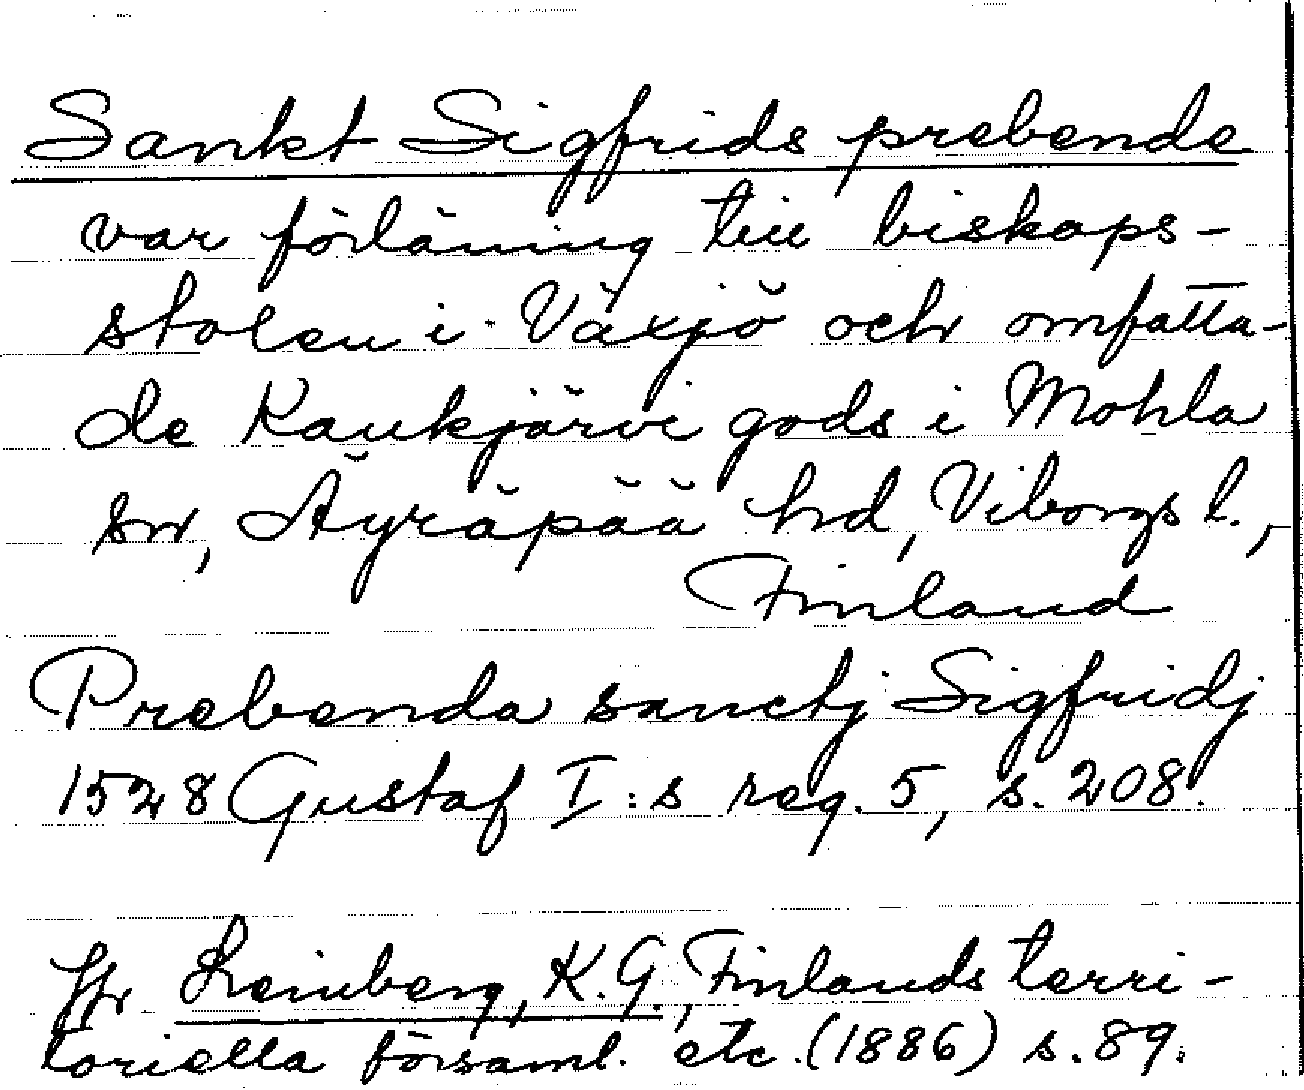 Sankt Sigfrids prebende
var förläning till biskops-
stolen i Växjö och omfatta-
de Kaukjärvi gods i Mohla
sn, Äyräpää hd, Viborgs l.,
Finland
Prebenda sanctj Sigfridj
1528 Gustaf I:s reg. 5, s. 208.
Jfr Leinberg, K.G., Finlands terri-
toriella församl. etc. (1886) s. 89.